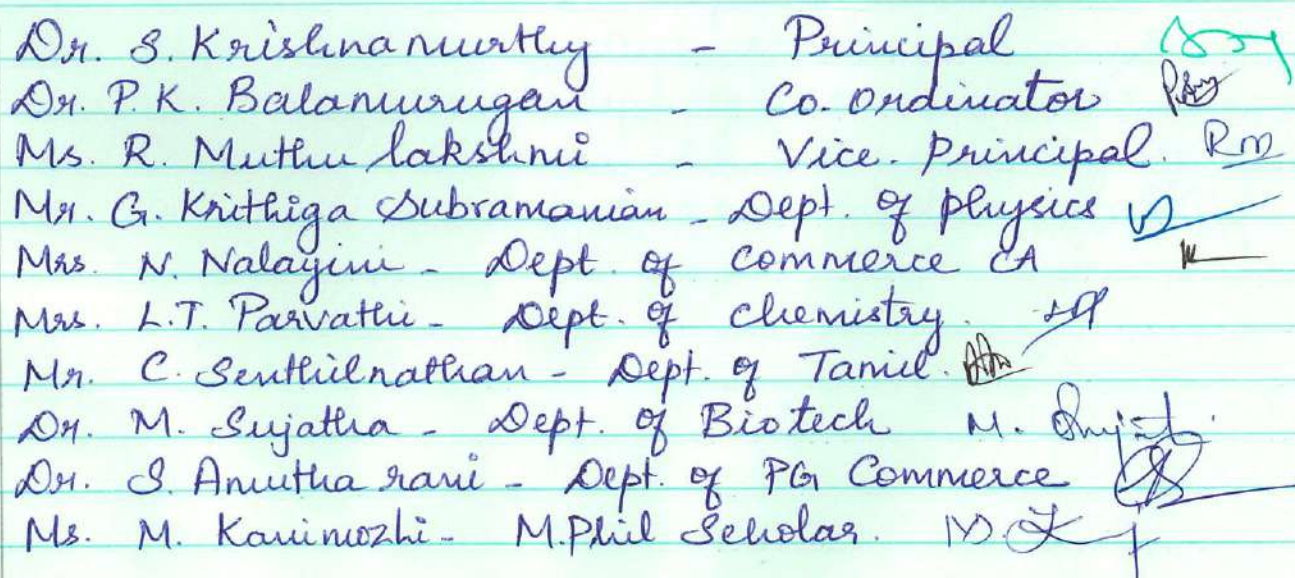 Dr. S. Krishnamurthy - Principal
Dr. P.K. Balamurugan - Co. ordinator
Ms. R. Muthu lakshmi - Vice. Principal. Rm
Mr. G. Krithiga Subramanian - Dept. of physics
Mrs. N. Nalayini - Dept. of Commerce CA
Mrs. L.T. Parvathi - Dept. of Chemistry.
Mr. C. Senthilnathan - Dept. of Tamil.
Dr. M. Sujatha - Dept. of Biotech M.
Dr. S. Amutha rani - Dept. of PG Commerce
Ms. M. Kanimozhi - M.Phil Scholar.